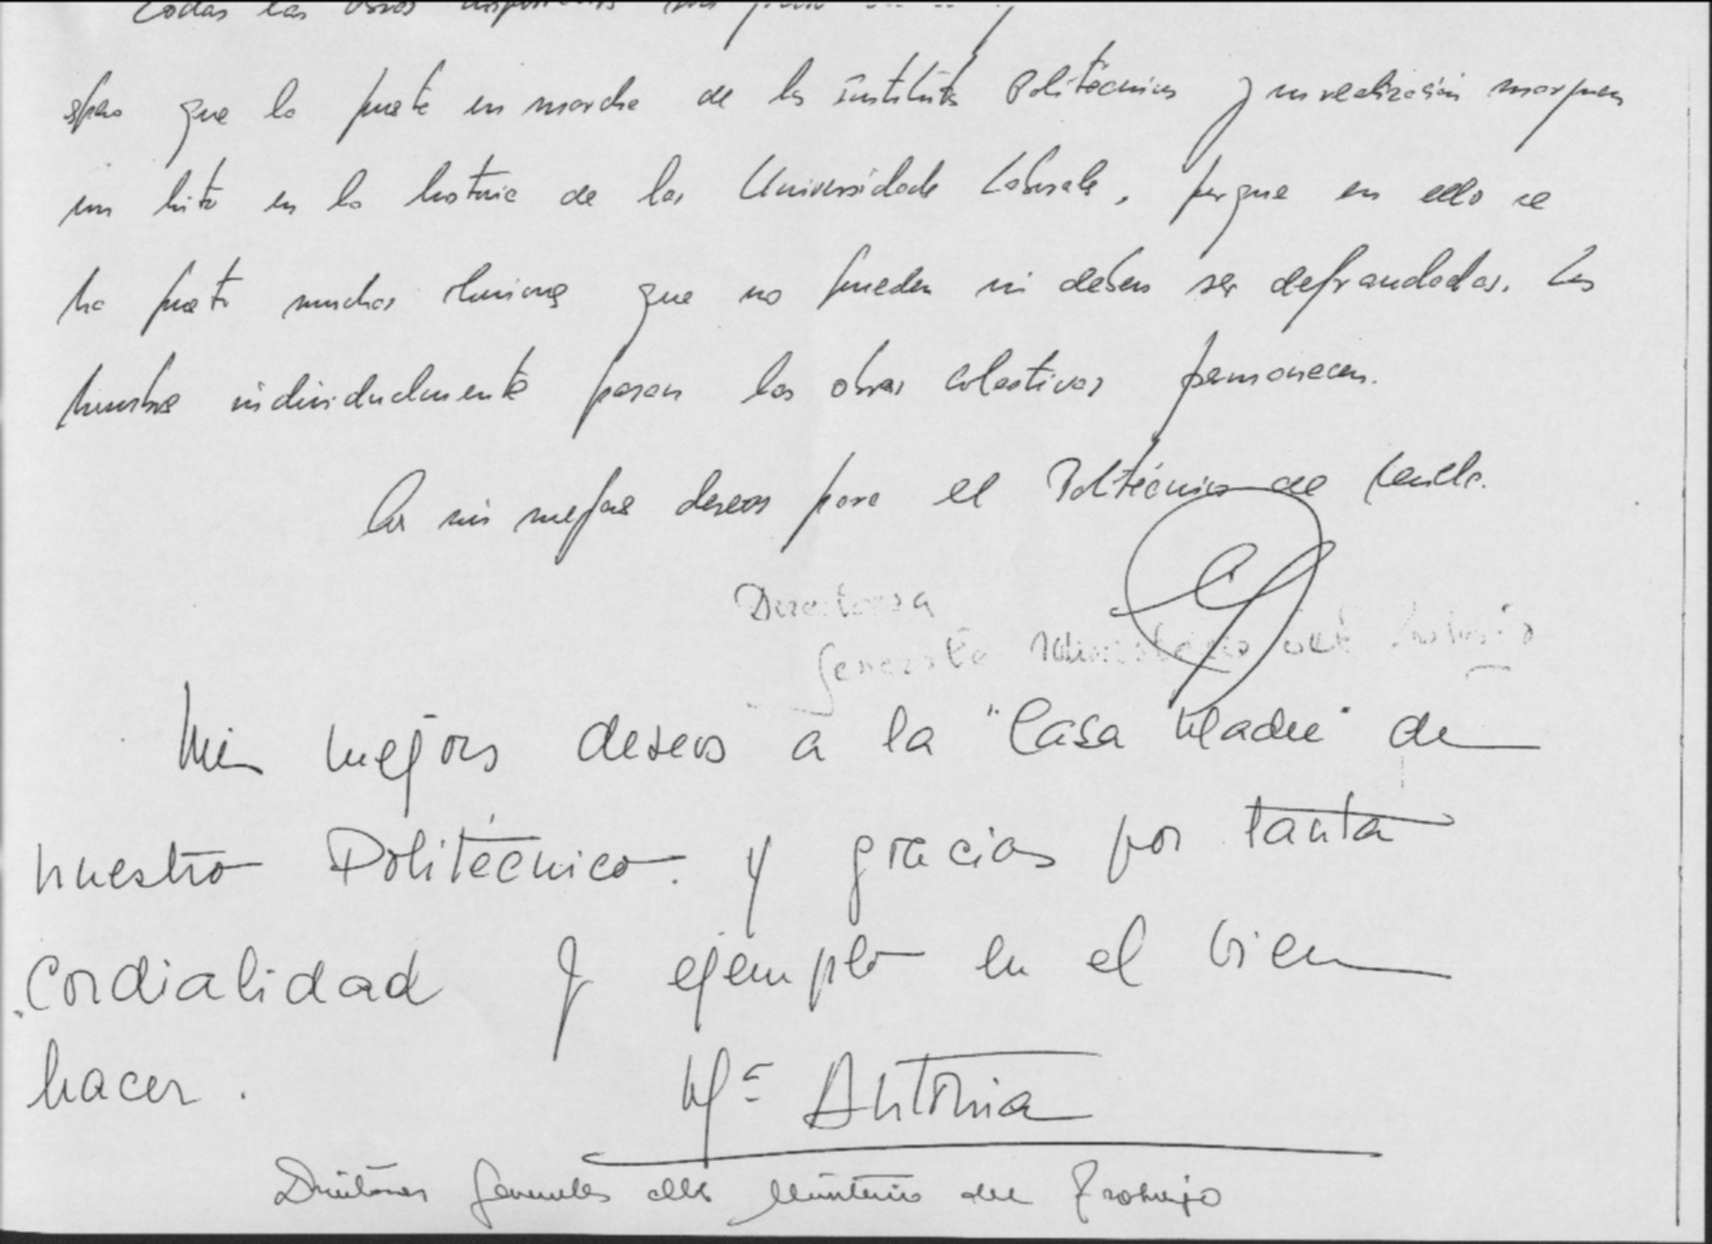 Todas las obras
espero que la puesta en marcha de los Institutos Politécnicos y su realización marquen
un hito en la historia de las Universidades Laborales, porque en ello se
ha puesto muchas ilusiones que no pueden ni deben ser defraudadas. Los
hombres individualmente pasan las obras colectivas permanecen.
Con mis mejores deseos para el Politécnico de Sevilla.
Directora
General Ministerio del Trabajo
Mis mejores deseos a la "Casa Madre" de
nuestro Politécnico. y gracias por tanta
cordialidad y ejemplo en el bien
hacer.
Mª Antonia
Directores Generales del Ministerio del Trabajo